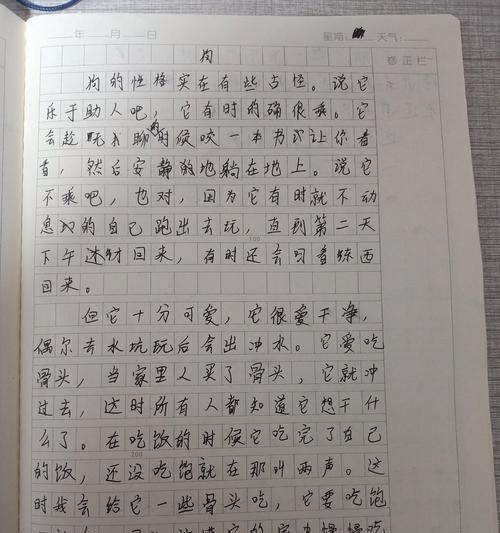 年 月 日 星期: 天气:
修正栏
狗
狗的性格实在有些古怪。说它
乐于助人吧，它有时的确很乖。它
会趁无聊的时候咬一本书以让你看
看，然后安静的地躺在地上。说它
不乖吧，也对，因为它有时就不动
息的自己跑出去玩，直到第二天
下午才回来，有时还会叼着东西
回来。
但它十分可爱，它很爱干净，
偶尔去水坑玩后会出冲水。它爱吃
骨头，当家里人买了骨头，它就冲
过去，这时所有人都知道它想干什
100
么了。在吃饭的时候它吃完了自己
200
的饭，还没吃饱就在那叫两声。这
时我会给它一些骨头吃，它要吃饱